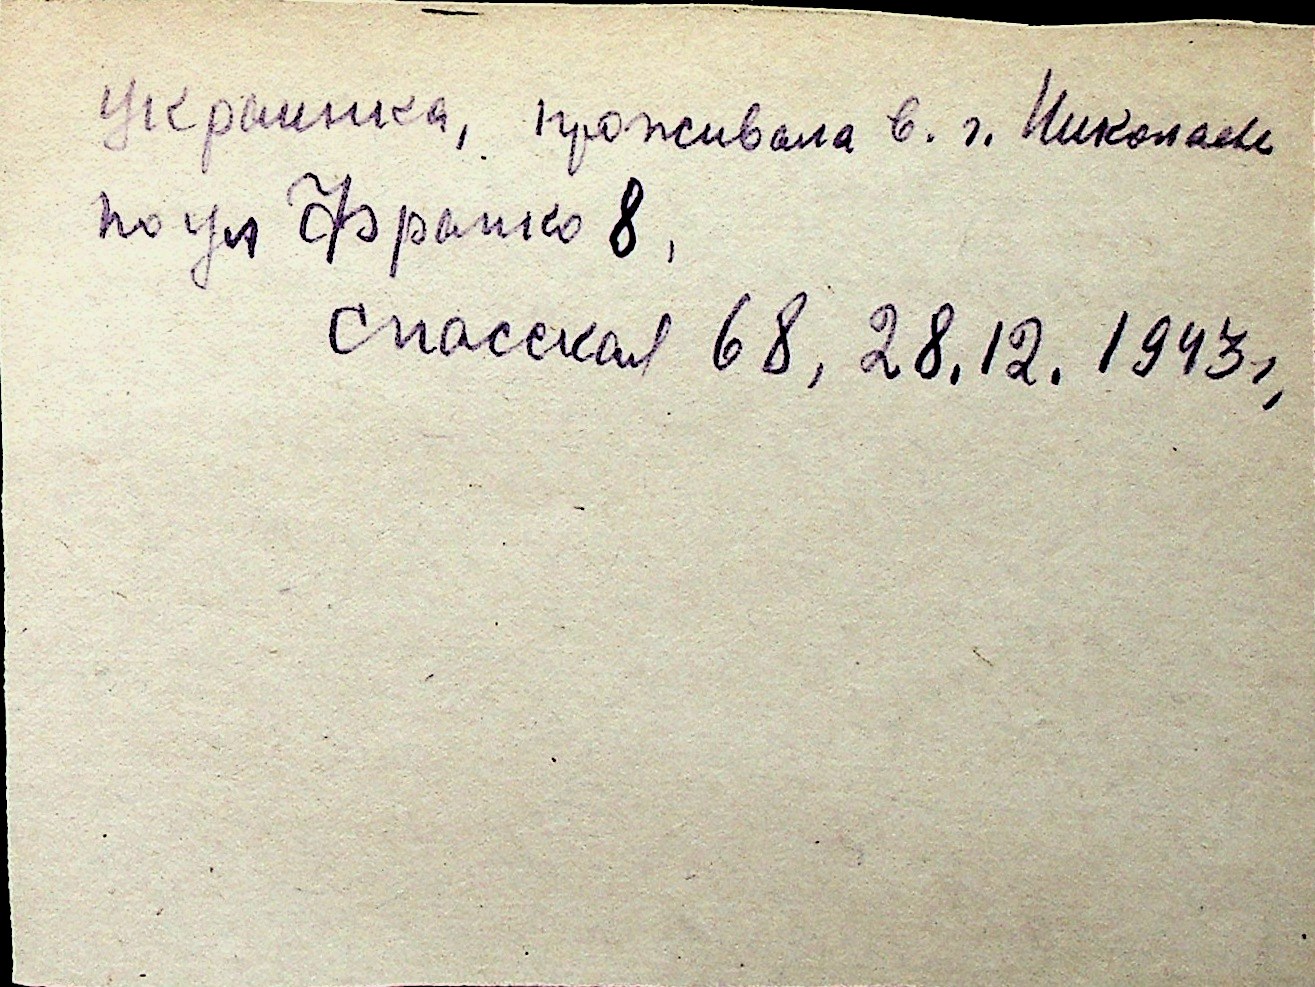 Украинка, проживала в. г. Николаеве
по ул Франко 8,
Спасская 68, 28.12.1943г,